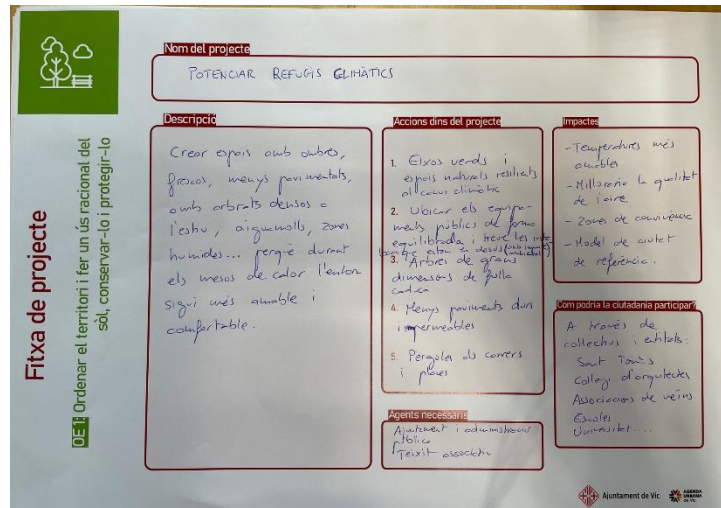 Fitxa de projecte
OE 1: Ordenar el territori i fer un ús racional del
sòl, conservar-lo i protegir-lo
Nom del projecte
POTENCIAR REFUGIS CLIMÀTICS
Descripció
Crear espais amb ombres,
frescos, menys pavimentats,
amb arbrats densos a
l'estiu, aiguamolls, zones
humides... perquè durant
els mesos de calor l'entorn
sigui més amable i
comfortable.
Accions dins del projecte
1. Eixos verds i
espais naturals resilients
al canvi climàtic
2. Ubicar els equipa-
ments públics de forma
equilibrada i treure les
que estan en desús
3. Arbres de grans
dimensions de fulla
caduca
4. Menys paviments durs
i impermeables
5. Pergoles als carrers
i places
Agents necessaris
Ajuntament i administració
pública
Teixit associatiu
Impactes
- Temperatures més
amables
- Milloraria la qualitat
de l'aire
- Zones de convivència
- Model de ciutat
de referència.
Com podria la ciutadania participar?
A través de
collectius i entitats:
Sant Tomàs
Collegi d'arquitectes
Associacions de veïns
Escoles
Universitat....
Ajuntament de Vic
AGENDA
URBANA
DE VIC